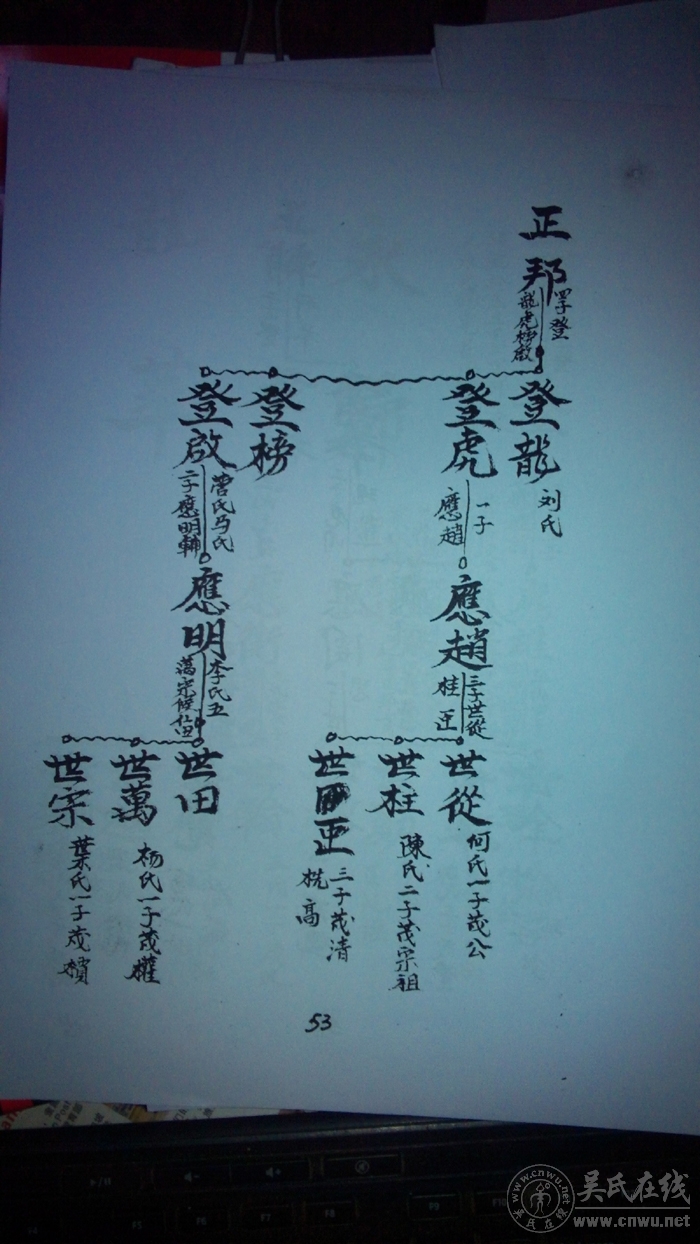 正邦
四子登
龍虎榜啟
登龍
刘氏
登虎
一子
應趙
登榜
登啟
曹氏马氏
二子應明輔
應趙
三子世從
柱正
應明
李氏五
萬宗候仁田
世從
何氏一子茂公
世柱
陳氏二子茂宗祖
世正
三子茂清
桄高
世田
世萬
杨氏一子茂權
世宗
葉氏一子茂
53
吴氏在线
www.cnwu.net